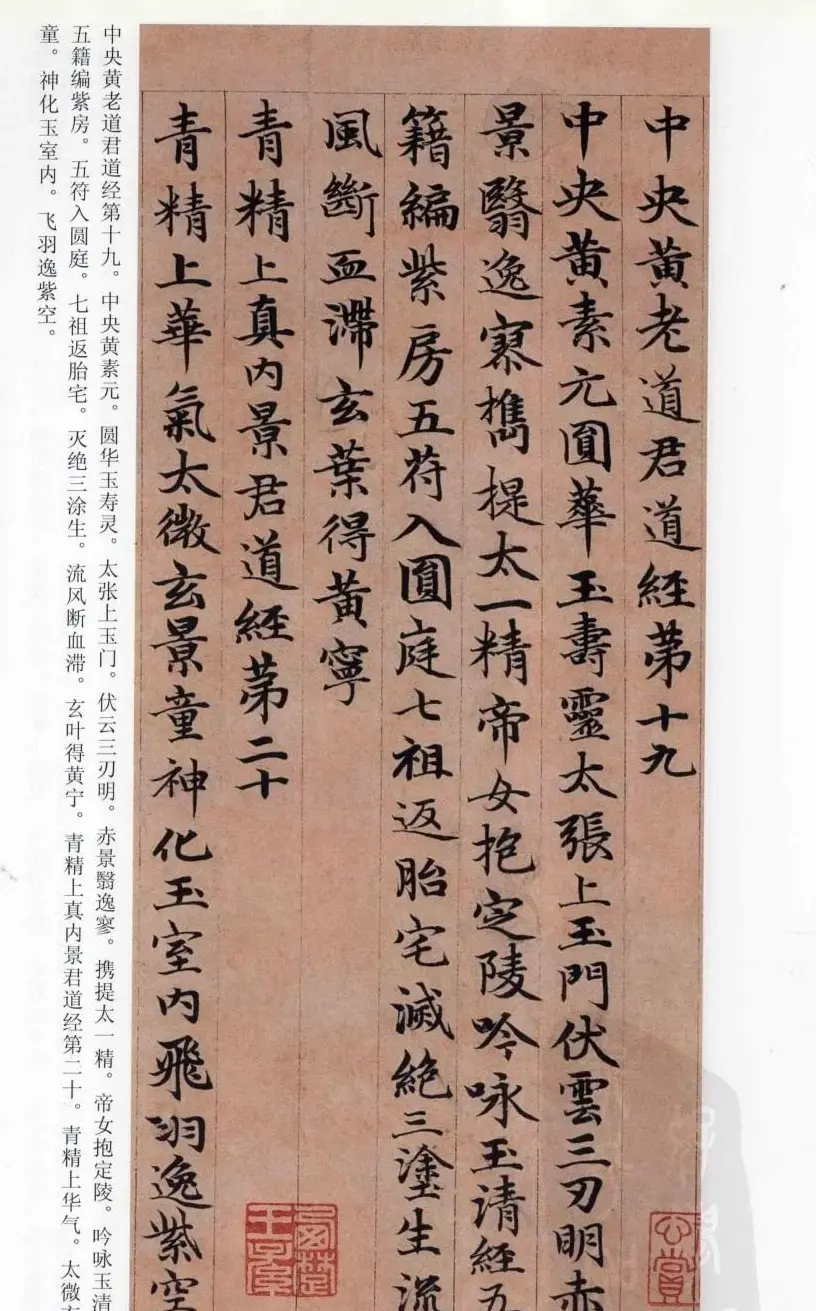 中央黄老道君道經第十九
中央黄素元圓華玉壽靈太張上玉門伏雲三刃明赤
景翳逸寥攜提太一精帝女抱定陵吟咏玉清經五
籍編紫房五符入圓庭七祖返胎宅滅絶三塗生流
風斷血滯玄葉得黄寧
青精上真内景君道經第二十
青精上華氣太微玄景童神化玉室内飛羽逸紫空
公賞
中央黄老道君道经第十九。中央黄素元。圆华玉寿灵。太张上玉门。伏云三刃明。赤景翳逸寥。携提太一精。帝女抱定陵。吟咏玉清
五籍编紫房。五符入圆庭。七祖返胎宅。灭绝三涂生。流风断血滞。玄叶得黄宁。青精上真内景君道经第二十。青精上华气。太微玄
童。神化玉室内。飞羽逸紫空。